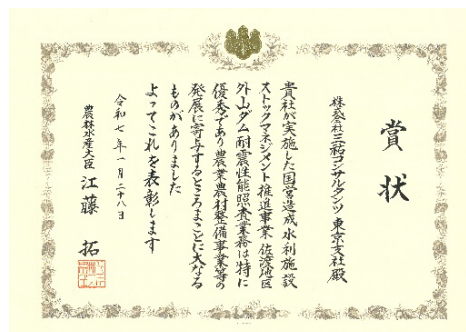 賞状
株式会社三祐コンサルタンツ 東京支社殿
貴社が実施した国営造成水利施設
ストックマネジメント推進事業 佐渡地区
外山ダム耐震性能照査業務は特に
優秀であり農業農村整備事業等の
発展に寄与するところまことに大なる
ものがありました
よってこれを表彰します
令和七年一月二十八日
農林水産大臣 江藤 拓